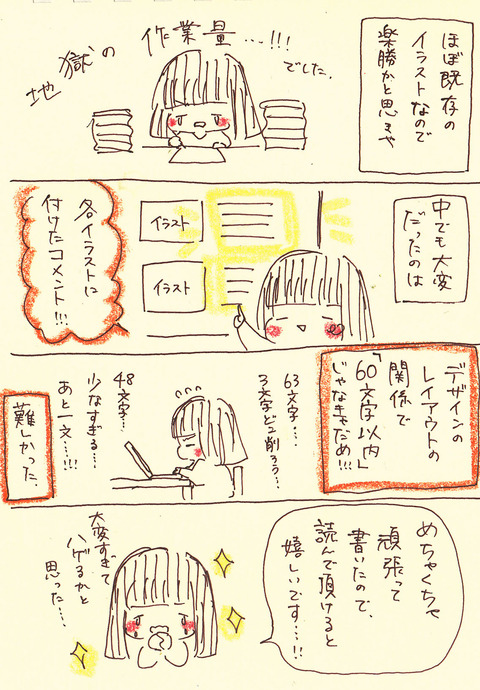 ほぼ既存の
イラストなので
楽勝かと思きや
地獄の
作業量…!!!
でした。
中でも大変
だったのは
イラスト
イラスト
各イラストに
付けたコメント!!!
デザインの
レイアウトの
関係で
「60文字以内」
じゃなきゃだめ!!!
63文字…
3文字どこ削ろう…
48文字…
少なすぎる…
あと一文…!!!
難しかった。
めちゃくちゃ
頑張って
書いたので、
読んで頂けると
嬉しいです…!!
大変すぎて
ハゲるかと
思った…。